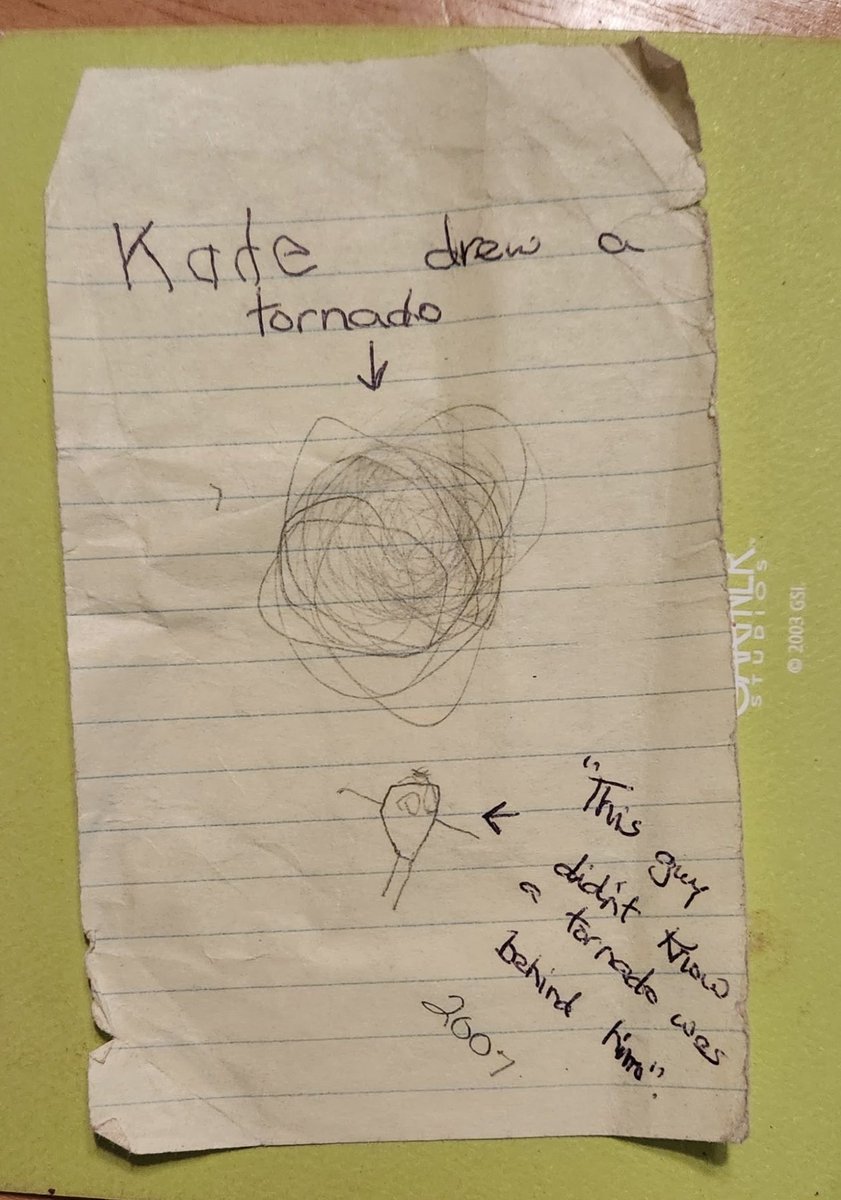 Kate drew a
tornado
"This guy
didn't know
a tornado was
behind him".
2007
STUDIOS
© 2003 GSI